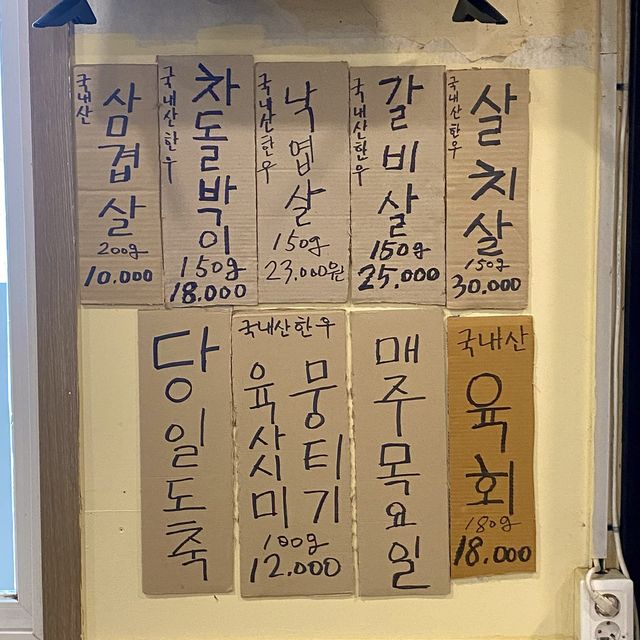 국내산
삼겹살
200g
10.000
국내산한우
차돌박이
150g
18.000
국내산한우
낙엽살
150g
23.000원
국내산한우
갈비살
150g
25.000
국내산한우
살치살
150g
30.000
당일도축
국내산한우
육사시미
뭉티기
100g
12.000
매주목요일
국내산
육회
180g
18.000